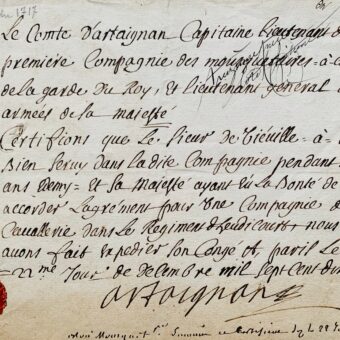 1717
Le Comte D'artaignan Capitaine Lieutenant d
premiere Compagnie des mousquetaires = a = c
de la garde du Roy, et lieutenant general d
armées de sa majesté
Certifions que Le sieur de Tiéville = à =
Bien servy dans la dite Compagnie pendant
ans demy = et sa Majesté ayant eu La Bonté de
accorder Lagrément pour Une Compagnie d
Cavallerie dans Le Regiment d'heudicourt nous
auons fait expedier son Congé
me Jour de decembre mil sept Cent di
artaignan